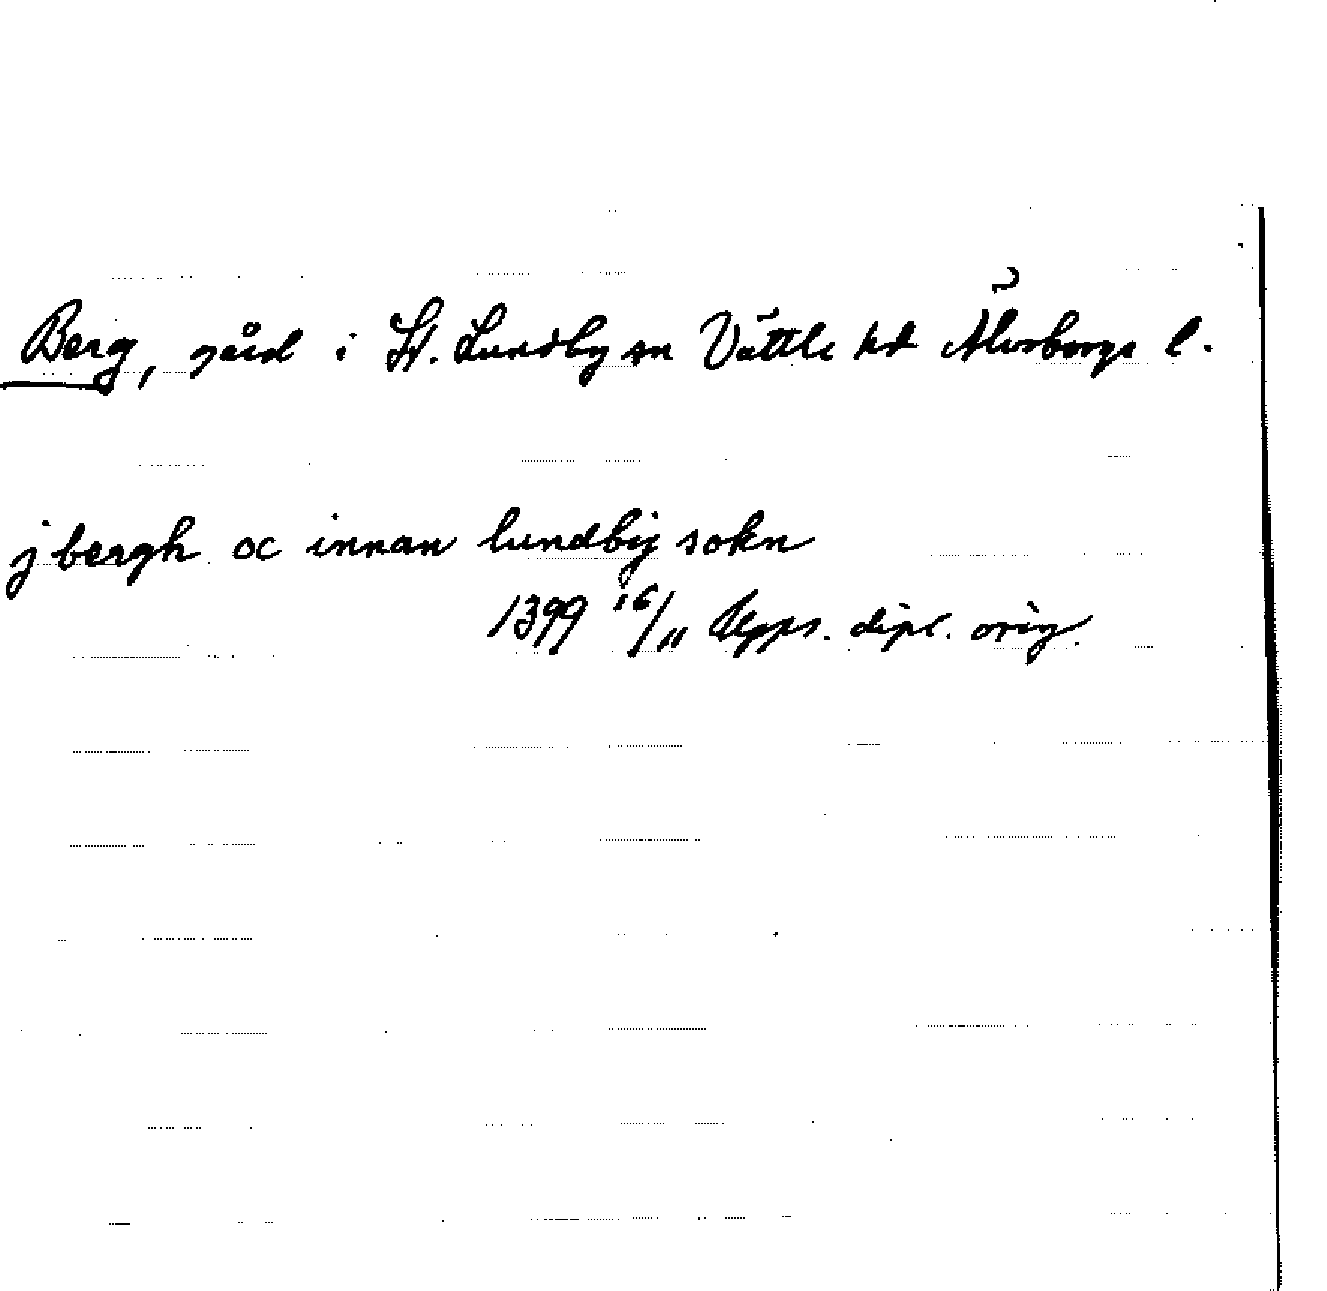 Berg, gård i St. Lundby sn Vättle hd Älvsborgs l.
j bergh oc innan lundbij sokn
1399 16/11 Upps. dipl. orig.